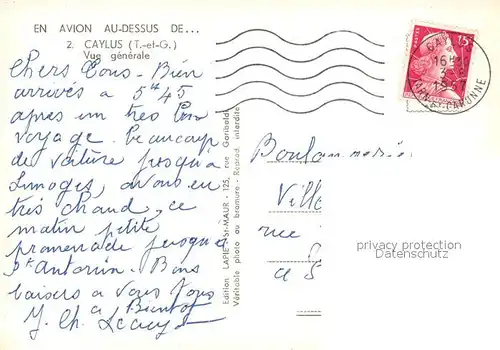 EN AVION AU-DESSUS DE...
2. CAYLUS (T.-et-G.)
Vue générale
Chers Tous - Bien
arrivés à 5h 45
après un très bon
voyage. Beaucoup
de voiture jusqu'à
Limoges, avons eu
très chaud, ce
matin petite
promenade jusqu'à
St Antonin. Bons
baisers à vous tous
à Bientôt
Edition LAPIE - St-MAUR - 125, rue Garibaldi
Véritable photo au bromure - Reprod. interdite
15F
POSTES
16 H
1957
TARN-ET-GARONNE
Ville
rue
privacy protection
Datenschutz